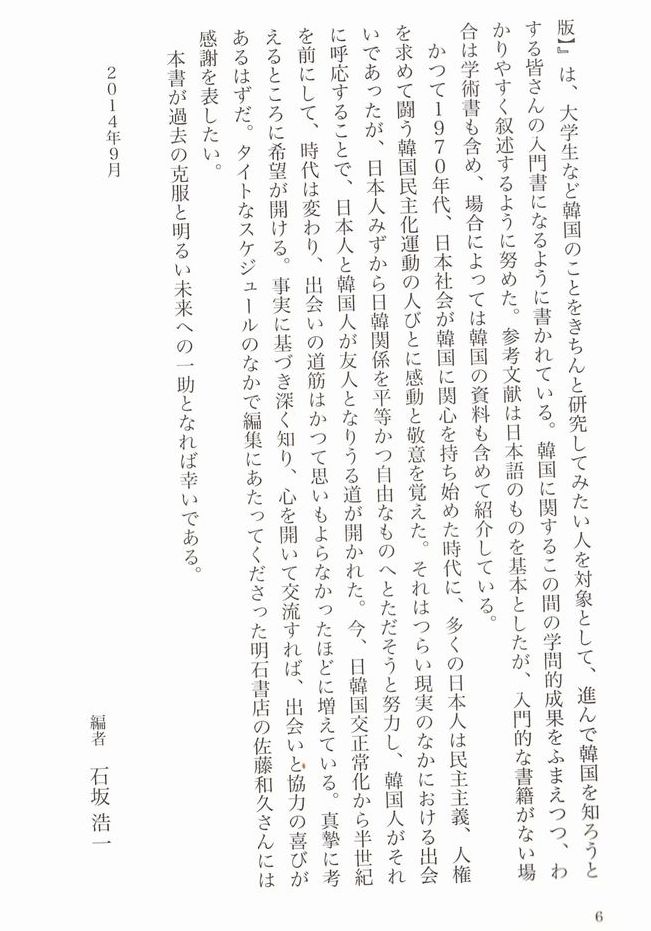 版】』は、大学生など韓国のことをきちんと研究してみたい人を対象として、進んで韓国を知ろうと
する皆さんの入門書になるように書かれている。韓国に関するこの間の学問的成果をふまえつつ、わ
かりやすく叙述するように努めた。参考文献は日本語のものを基本としたが、入門的な書籍がない場
合は学術書も含め、場合によっては韓国の資料も含めて紹介している。
かつて1970年代、日本社会が韓国に関心を持ち始めた時代に、多くの日本人は民主主義、人権
を求めて闘う韓国民主化運動の人びとに感動と敬意を覚えた。それはつらい現実のなかにおける出会
いであったが、日本人みずから日韓関係を平等かつ自由なものへとただそうと努力し、韓国人がそれ
に呼応することで、日本人と韓国人が友人となりうる道が開かれた。今、日韓国交正常化から半世紀
を前にして、時代は変わり、出会いの道筋はかつて思いもよらなかったほどに増えている。真摯に考
えるところに希望が開ける。事実に基づき深く知り、心を開いて交流すれば、出会いと協力の喜びが
あるはずだ。タイトなスケジュールのなかで編集にあたってくださった明石書店の佐藤和久さんには
感謝を表したい。
本書が過去の克服と明るい未来への一助となれば幸いである。
2014年9月
編者 石坂浩一
6